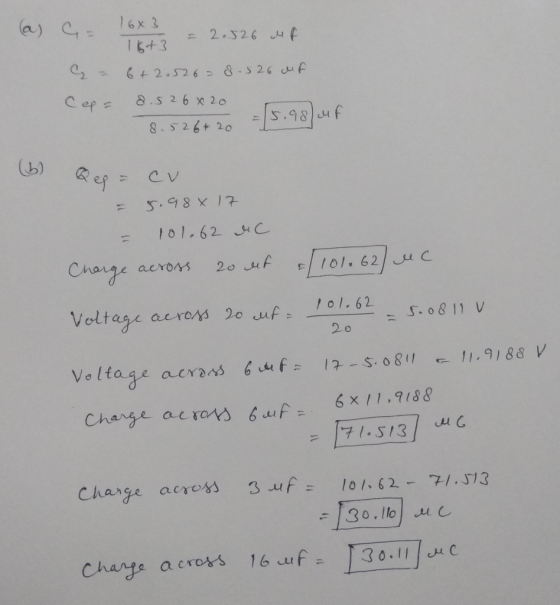 (a) C1 = 16 x 3 / 16+3 = 2.526 μf
C2 = 6 + 2.526 = 8.526 μf
Cep = 8.526 x 20 / 8.526 + 20 = 5.98 μf
(b) Qep = CV
= 5.98 x 17
= 101.62 μC
Charge across 20 μf = 101.62 μC
Voltage across 20 μf = 101.62 / 20 = 5.0811 V
Voltage across 6 μf = 17 - 5.0811 = 11.9188 V
Charge across 6 μf = 6 x 11.9188
= 71.513 μC
Charge across 3 μf = 101.62 - 71.513
= 30.110 μC
Charge across 16 μf = 30.11 μC